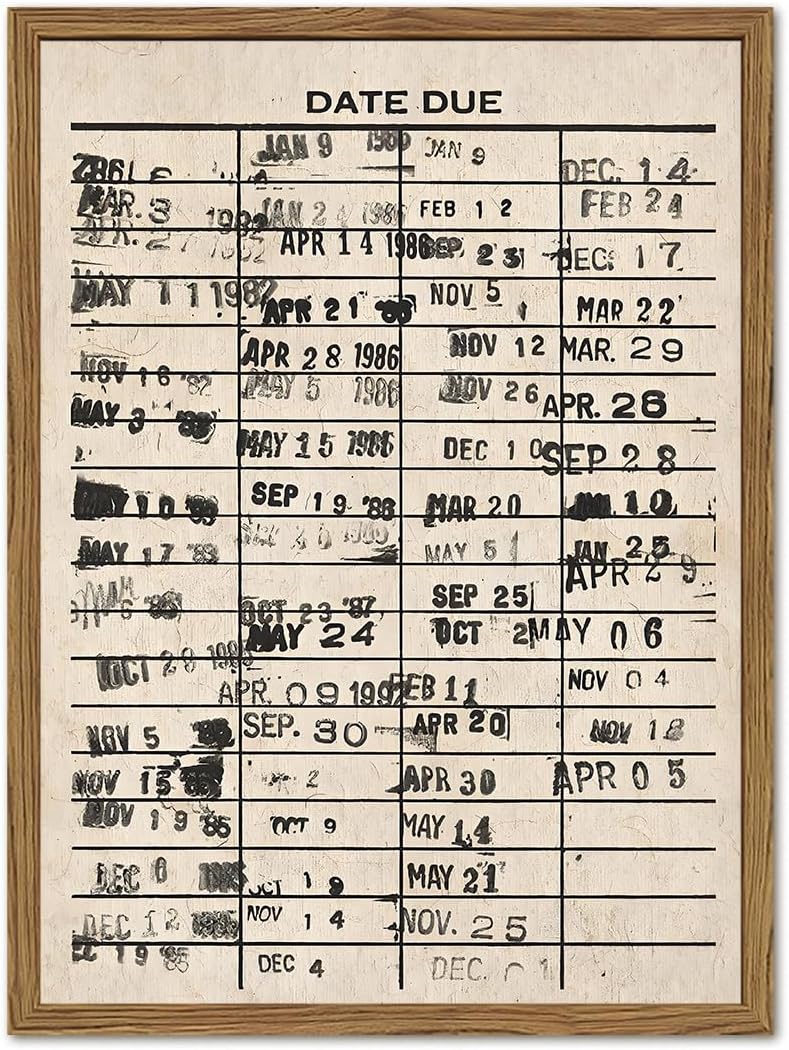 DATE DUE
MAR. 3
MAY 11 1982
NOV 16 '82
MAY 3
MAY 10
MAY 17 '83
OCT 29
NOV 5
NOV 15 '85
NOV 19 '85
DEC 6
DEC 12 1985
19 '85
JAN 9
JAN 24 1986
APR 14 1986
APR 21 '86
APR 28 1986
MAY 5 1986
MAY 15 1986
SEP 19 '86
OCT 23 '87
MAY 24
APR. 09 1992
SEP. 30
2
OCT 9
OCT 19
NOV 14
DEC 4
JAN 9
FEB 12
SEP 23
NOV 5
NOV 12
NOV 26
DEC 10
MAR 20
MAY 5
SEP 25
OCT 2
FEB 11
APR 20
APR 30
MAY 14
MAY 21
NOV. 25
DEC. 1
DEC. 14
FEB 24
DEC. 17
MAR 22
MAR. 29
APR. 26
SEP 28
10
JAN 25
APR 29
MAY 06
NOV 04
NOV 18
APR 05